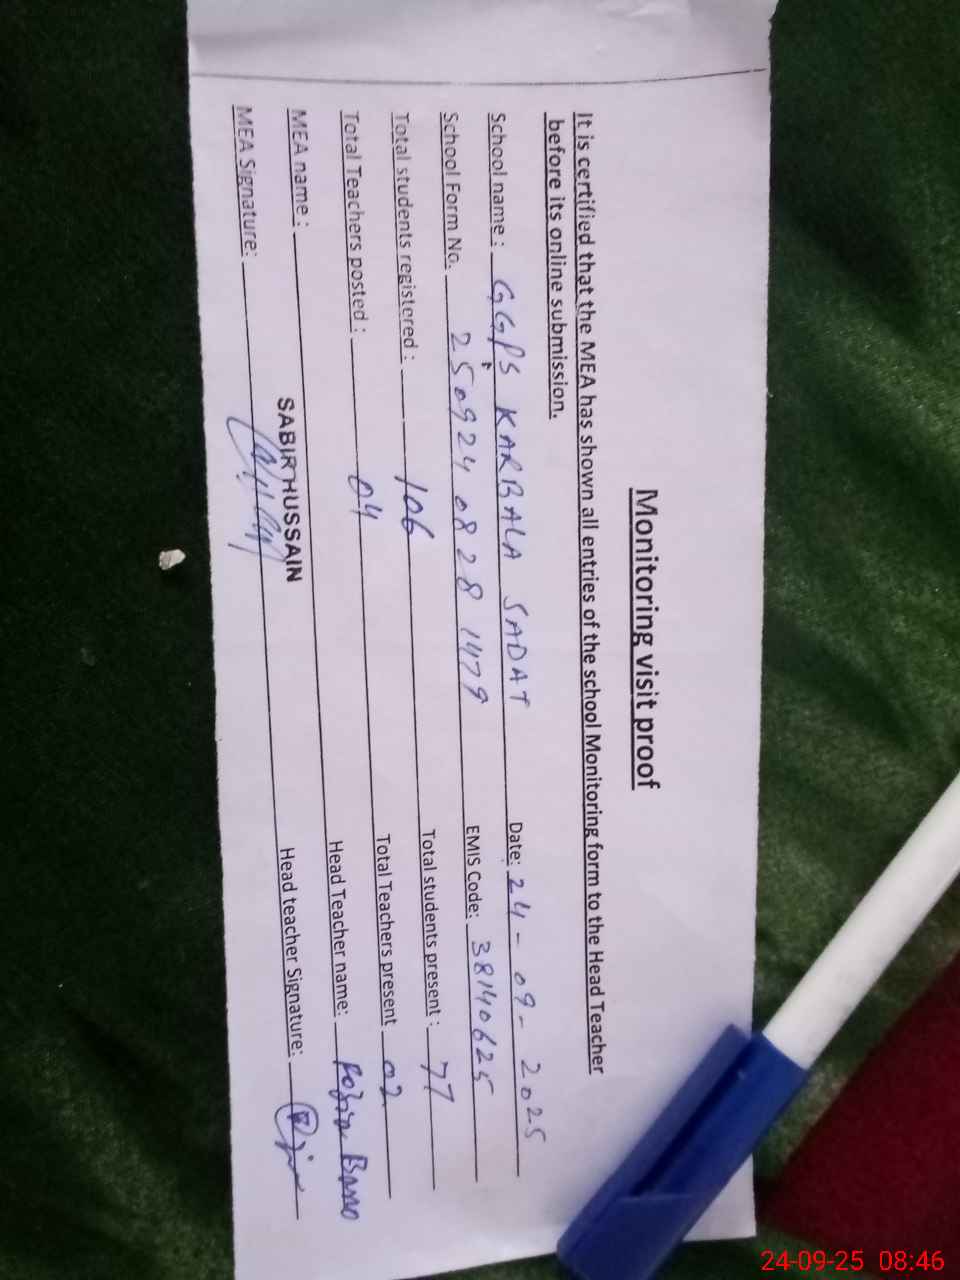 Monitoring visit proof
It is certified that the MEA has shown all entries of the school Monitoring form to the Head Teacher
before its online submission.
School name : GGPS KARBALA SADAT Date: 24-09-2025
School Form No. 250924 08 28 1479 EMIS Code: 38140625
Total students registered : 106 Total students present : 77
Total Teachers posted : 04 Total Teachers present 02
MEA name : SABIR HUSSAIN Head Teacher name: Bano
MEA Signature: Head teacher Signature:
24-09-25 08:46